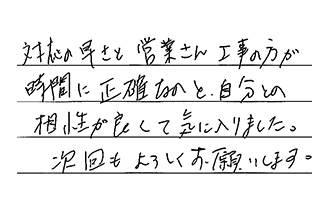 対応の早さと営業さん工事の方が
時間に正確なのと、自分との
相性が良くて気に入りました。
次回もよろしくお願いします。